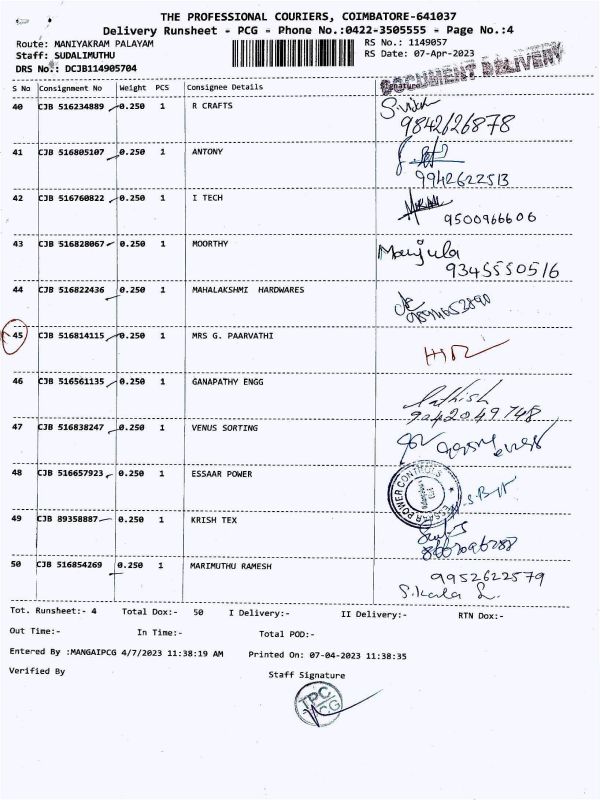 THE PROFESSIONAL COURIERS, COIMBATORE-641037
Delivery Runsheet - PCG - Phone No.:0422-3505555 - Page No.:4
Route: MANIYAKRAM PALAYAM
RS No.: 1149057
Staff: SUDALIMUTHU
RS Date: 07-Apr-2023
DRS No.: DCJB114905704
DOCUMENT DELIVERY
S No Consignment No Weight PCS Consignee Details Signature
40 CJB 516234889 0.250 1 R CRAFTS
9842126878
41 CJB 516805107 0.250 1 ANTONY
9942622513
42 CJB 516760822 0.250 1 I TECH
9500966606
43 CJB 516828067 0.250 1 MOORTHY Manjula
9345550516
44 CJB 516822436 0.250 1 MAHALAKSHMI HARDWARES
45 CJB 516814115 0.250 1 MRS G. PAARVATHI
46 CJB 516561135 0.250 1 GANAPATHY ENGG
9042049748
47 CJB 516838247 0.250 1 VENUS SORTING
48 CJB 516657923 0.250 1 ESSAAR POWER
ESSAR POWER CONTROLS
49 CJB 89358887 0.250 1 KRISH TEX
50 CJB 516854269 0.250 1 MARIMUTHU RAMESH
9952622579
S.Kala
Tot. Runsheet:- 4 Total Dox:- 50 I Delivery:- II Delivery:- RTN Dox:-
Out Time:- In Time:- Total POD:-
Entered By :MANGAIPCG 4/7/2023 11:38:19 AM Printed On: 07-04-2023 11:38:35
Verified By Staff Signature
TPC
PCG